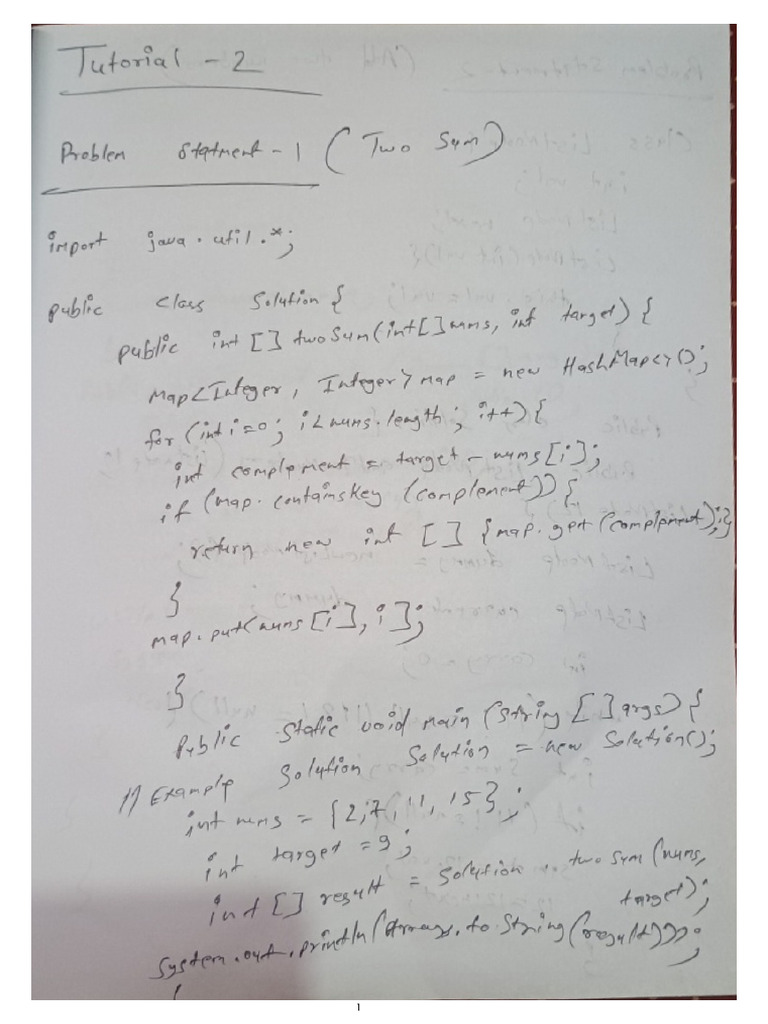 Tutorial - 2
Problem Statment - 1 ( Two Sum)
import java.util.*;
public class Solution {
public int [] twoSum(int[]nums, int target) {
Map<Integer, Integer> map = new HashMap<>();
for (int i=0; i<nums.length; i++) {
int complement = target - nums[i];
if (map.containsKey (complement)) {
return new int [] {map.get(complement);}
}
map.put(nums[i], i];
}
Public static void main (String [] args) {
// Example Solution Solution = new Solution();
int nums = {2,7,11, 15};
int target = 9;
int [] result = Solution. two Sum (nums,
target);
System.out.println(Arrays.to String(result)));
1